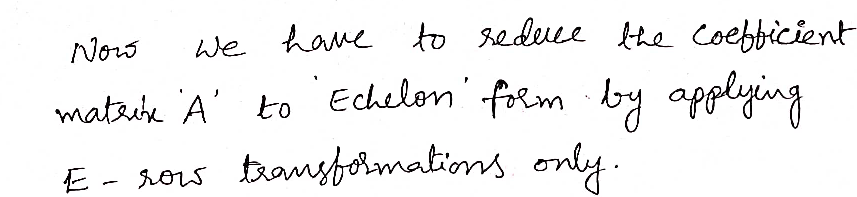 Now we have to reduce the coefficient
matrix 'A' to 'Echelon' form by applying
E - row transformations only.